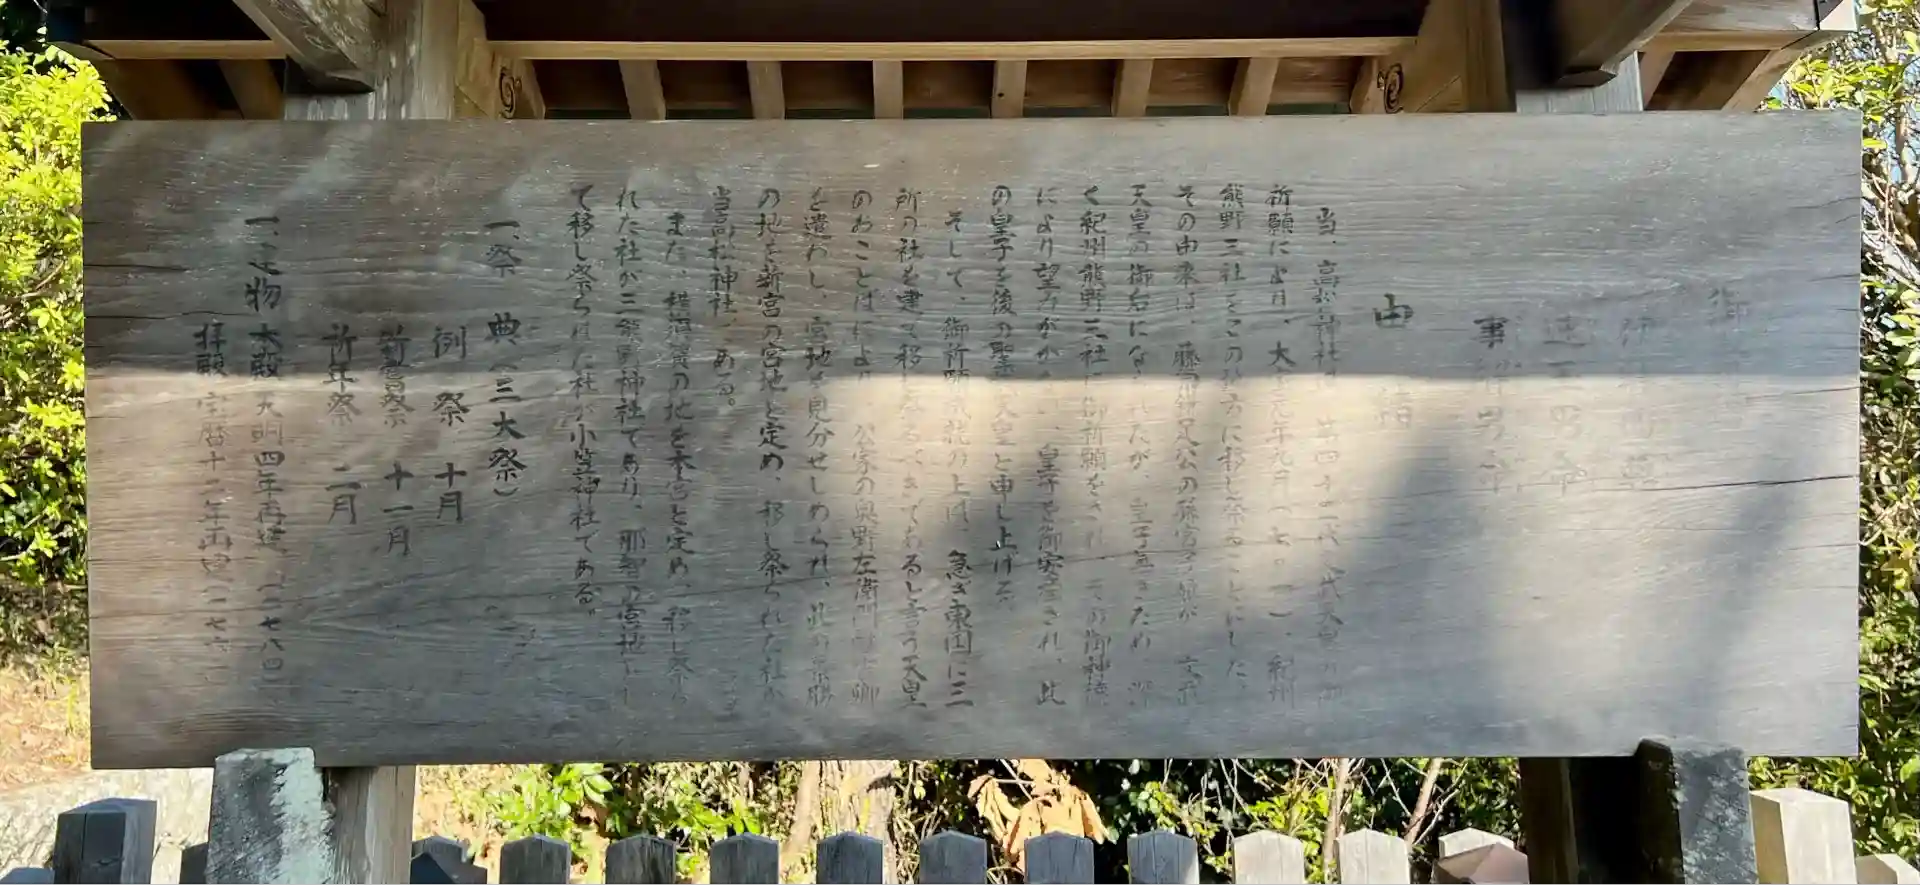 御
伊弉冊尊
速玉男命
事解男命
由 緒
当、高松神社は、第四十二代 文武天皇の御
祈願により、大宝元年九月(七〇一)、紀州
熊野三社をこの地方に移し祭ることにした。
その由来は、藤原鎌足公の孫宮子姫が、文武
天皇の御后になられたが、皇子無きため、深
く紀州熊野三社に御祈願をされ、その御神徳
により望みがかない、皇子を御安産され、此
の皇子を後の聖武天皇と申し上げる。
そして、御祈願成就の上は、急ぎ東国に三
所の社を建て移し奉るべきであると言う天皇
のおことばにより、公家の奥野左衛門 卿
を遣わし、宮地を見分せしめられ、此の景勝
の地を新宮の宮地と定め、移し祭られた社が
当高松神社である。
また、横須賀の地を本宮と定め、移し祭ら
れた社が三熊野神社であり、那智の宮地とし
て移し祭られた社が小笠神社である。
一、祭 典(三大祭)
例 祭 十月
新嘗祭 十一月
祈年祭 二月
一、建物 本殿 天明四年再建 (一七八四)
拝殿 宝暦十二年再建 (一七六二)